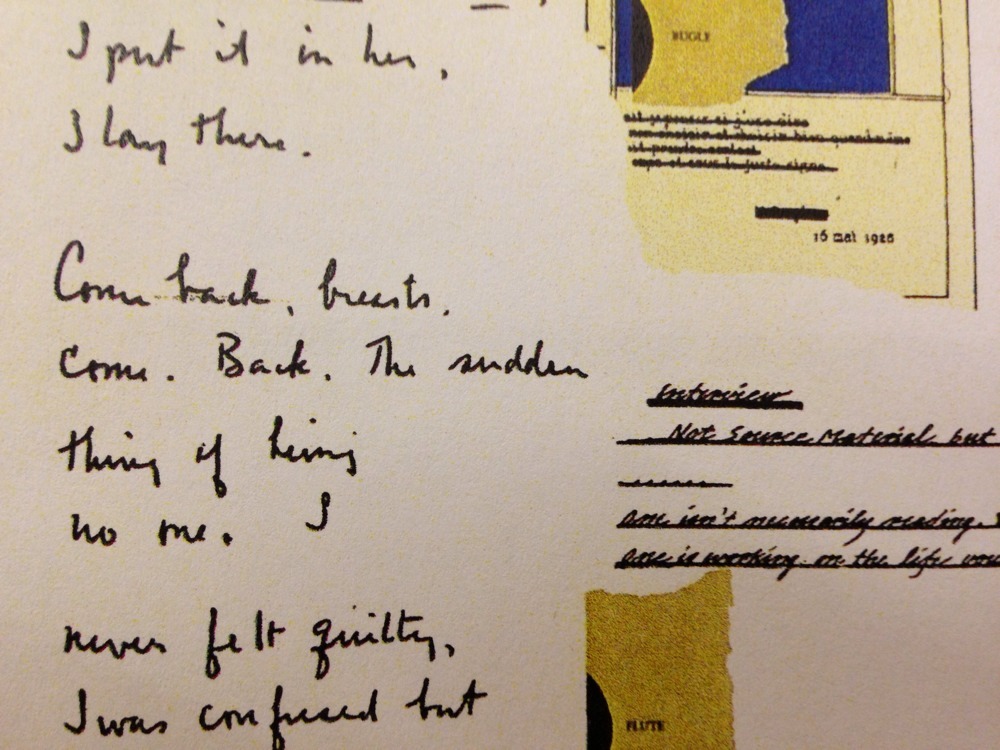 I put it in her,
I lay there.
Come back, breasts,
come. Back. The sudden
thing of being
no one. I
never felt guilty,
I was confused but
BUGLE
16 mai 1926
Interview
Not Source Material but
one isn't necessarily reading.
one is working on the life
FLUTE